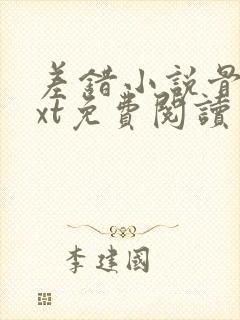 差錯小説骨
xt免費閱讀
李建國